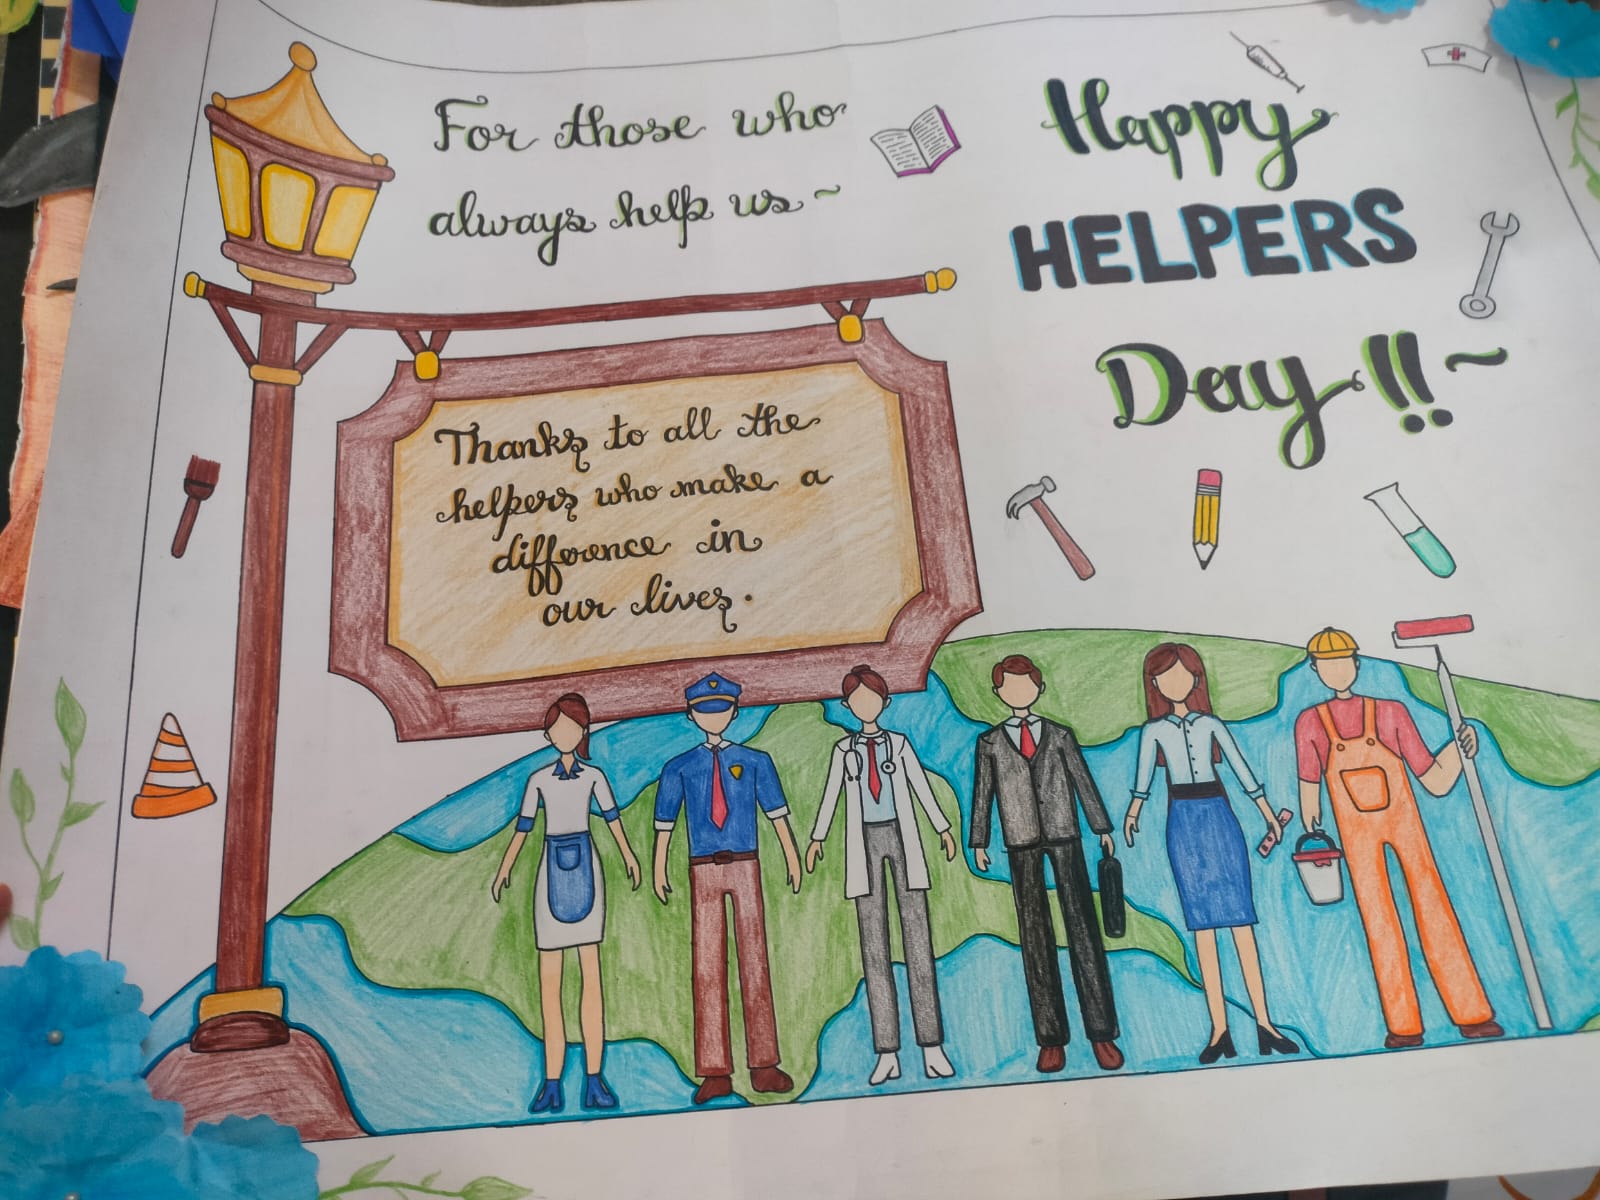 For those who
always help us ~
Happy
HELPERS
Day !! ~
Thanks to all the
helpers who make a
difference in
our lives.